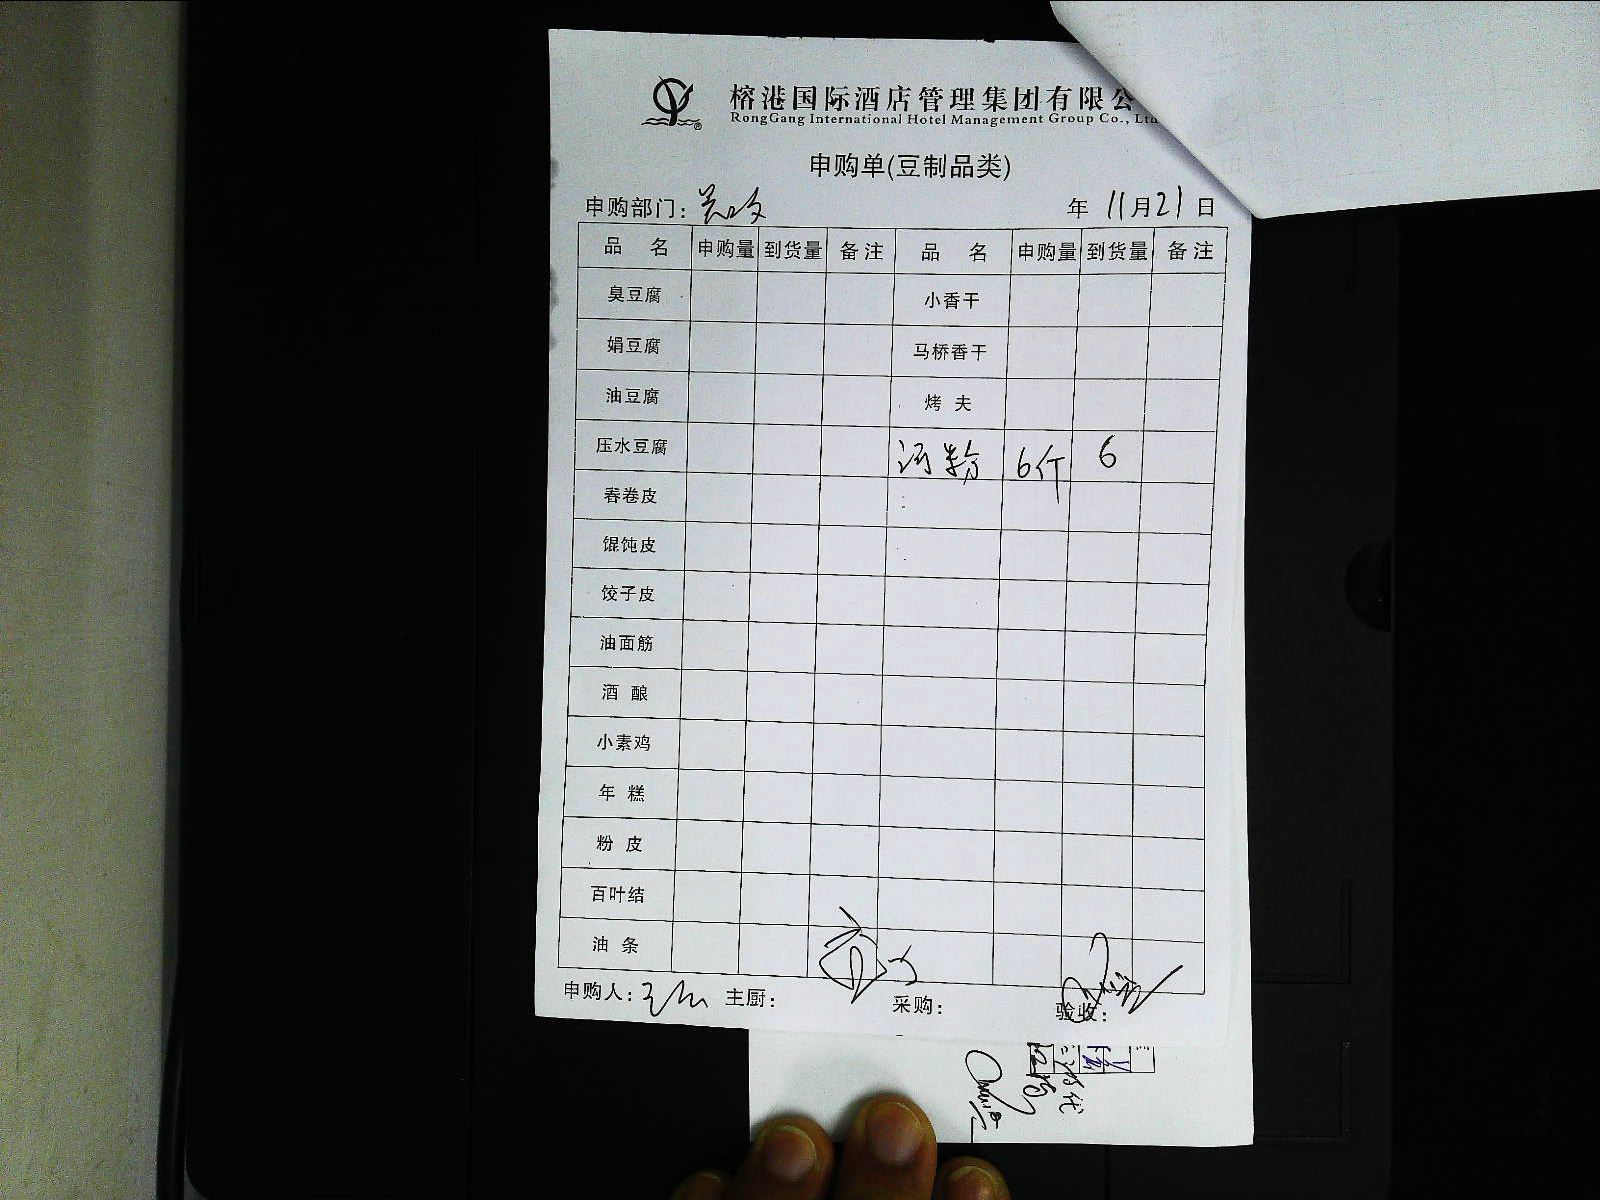 榕港国际酒店管理集团有限公
RongGang International Hotel Management Group Co., Ltd
申购单(豆制品类)
申购部门: 年 11月21日
品 名 申购量 到货量 备注 品 名 申购量 到货量 备注
臭豆腐 小香干
娟豆腐 马桥香干
油豆腐 烤 夫
压水豆腐 河粉 6斤 6
春卷皮
馄饨皮
饺子皮
油面筋
酒 酿
小素鸡
年 糕
粉 皮
百叶结
油 条
申购人: 主厨: 采购: 验收: